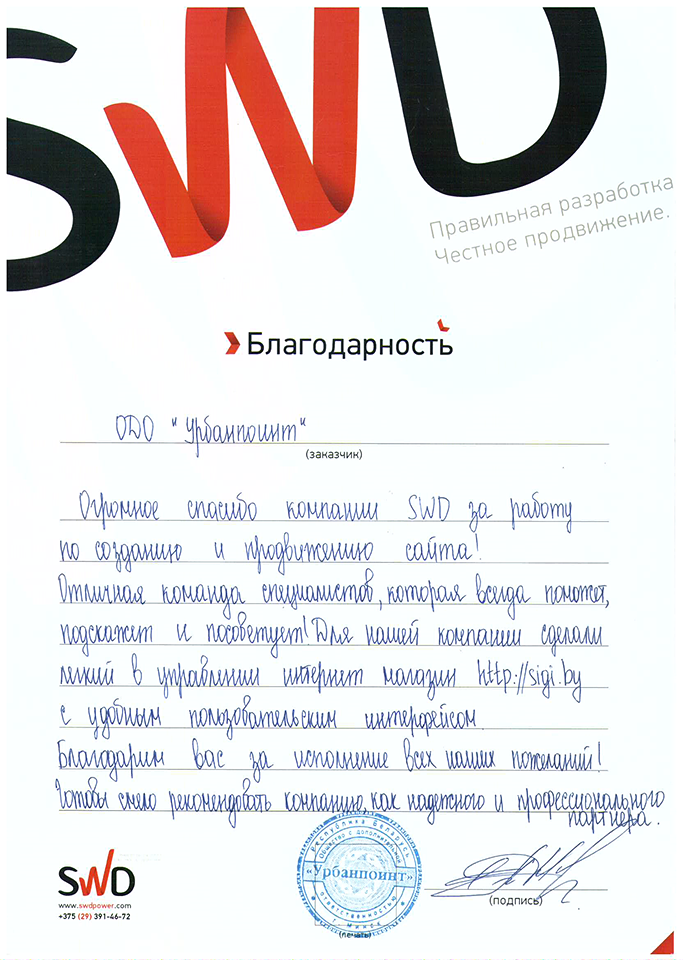 SWD
Правильная разработка
Честное продвижение.
Благодарность
ОДО "Урбанпоинт"
(заказчик)
Огромное спасибо компании SWD за работу
по созданию и продвижению сайта!
Отличная команда специалистов, которая всегда поможет,
подскажет и посоветует! Для нашей компании сделали
легкий в управлении интернет магазин http://sigi.by
с удобным пользовательским интерфейсом.
Благодарим вас за исполнение всех наших пожеланий!
Готовы смело рекомендовать компанию, как надежного и профессионального
партнера.
Республика Беларусь
Общество с дополнительной
«Урбанпоинт»
ответственностью
г. Минск
SWD
www.swdpower.com
+375 (29) 391-46-72
(подпись)
(печать)